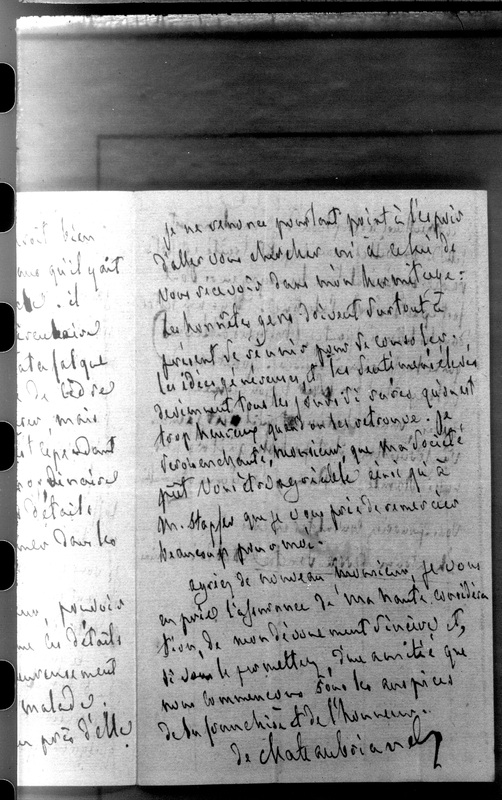 bien
qu'il y ait
il
circulaire
catafalque
de Cèdre
mais
cependant
ordinaire
détails
dans les
pouvoir
les détails
heureusement
malade.
près d'elle.
je ne renonce pourtant point à l'espoir
d'aller vous chercher ni à celui de
vous recevoir dans mon hermitage:
les honnêtes gens doivent surtout à
présent se réunir pour se consoler.
les idées généreuses, et les sentimens élevés
deviennent tous les jours si rares qu'on est
trop heureux quand on les retrouve. je
serois enchanté, monsieur, que ma société
pût vous être agréable ainsi qu'à
Mr. Stapfer que je vous prie de remercier
beaucoup pour moi.
agréez de nouveau monsieur, je vous
en prie l'assurance de ma haute considéra
tion, de mon dévouement sincère et,
si vous le permettez, d'une amitié que
nous commencerons sous les auspices
de la franchise et de l'honneur.
de Chateaubriand